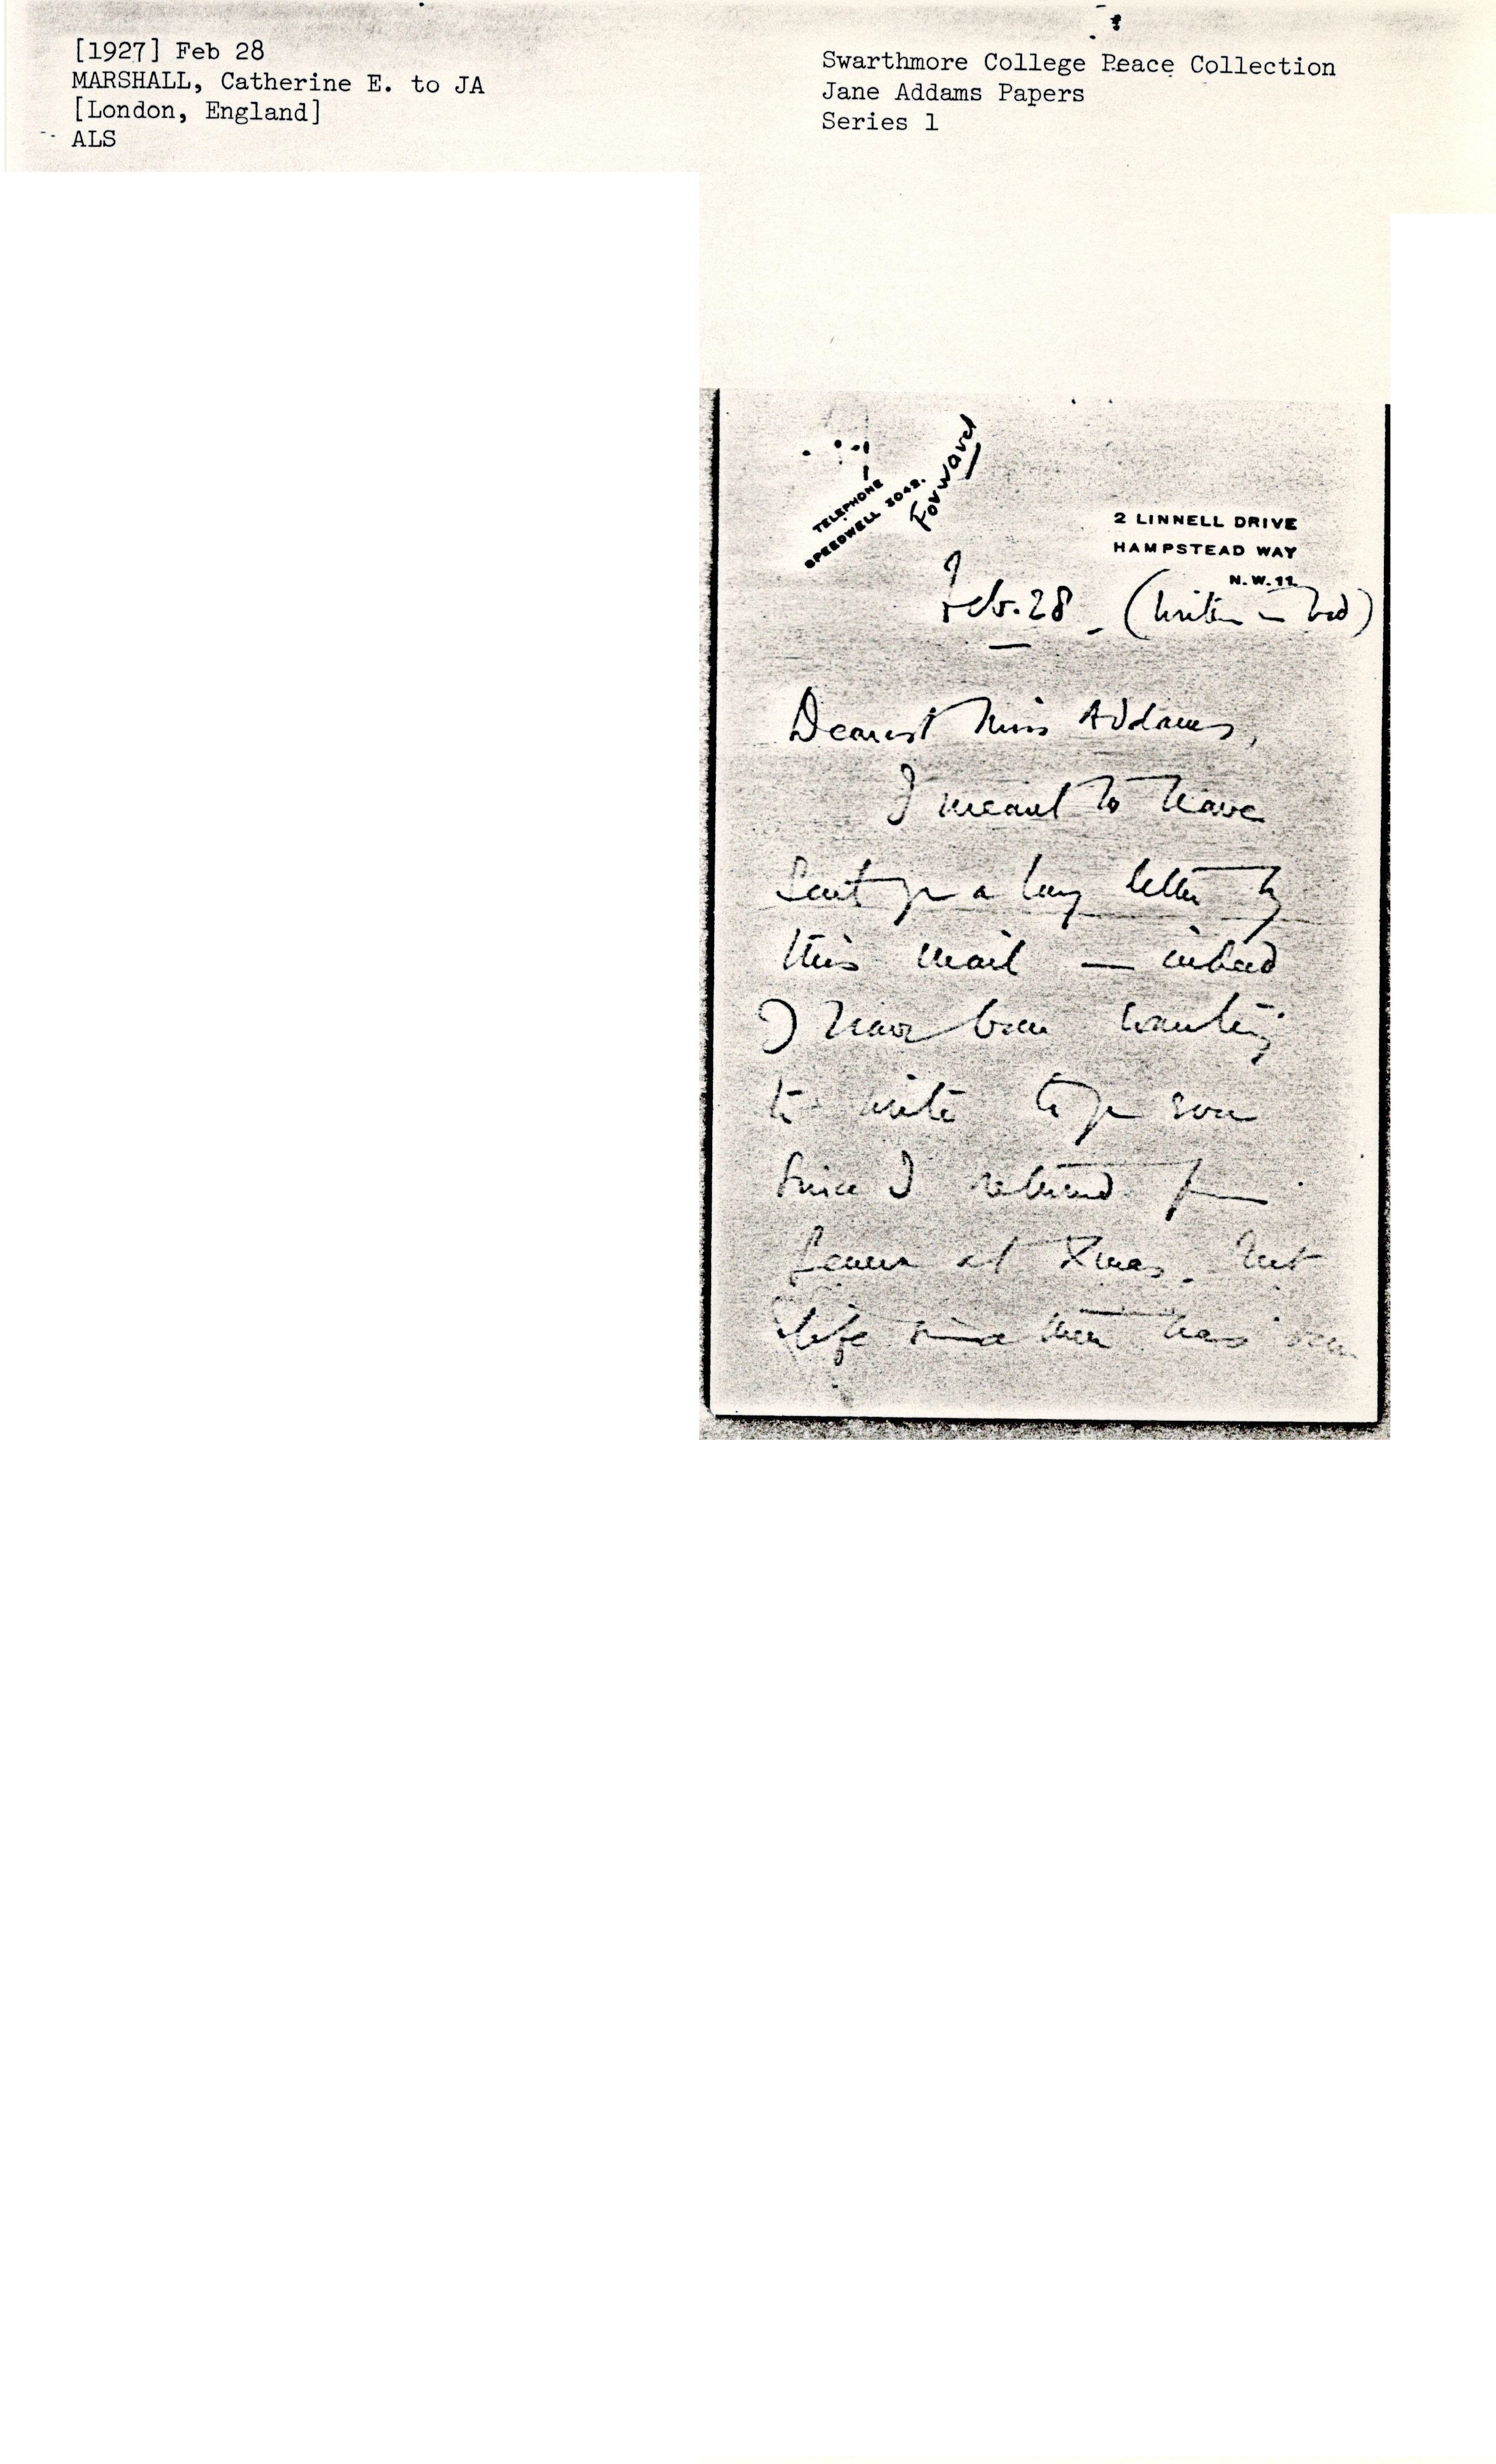 [1927] Feb 28
MARSHALL, Catherine E. to JA
[London, England]
ALS
Swarthmore College Peace Collection
Jane Addams Papers
Series 1
TELEPHONE
SPEEDWELL 3042.
Forward
2 LINNELL DRIVE
HAMPSTEAD WAY
N.W.11.
Feb. 28 - (written in bed)
Dearest Miss Addams,
I meant to have
sent you a long letter by
this mail — indeed
I have been wanting
to write to you ever
since I returned from
Geneva at Xmas. But
life since then has been